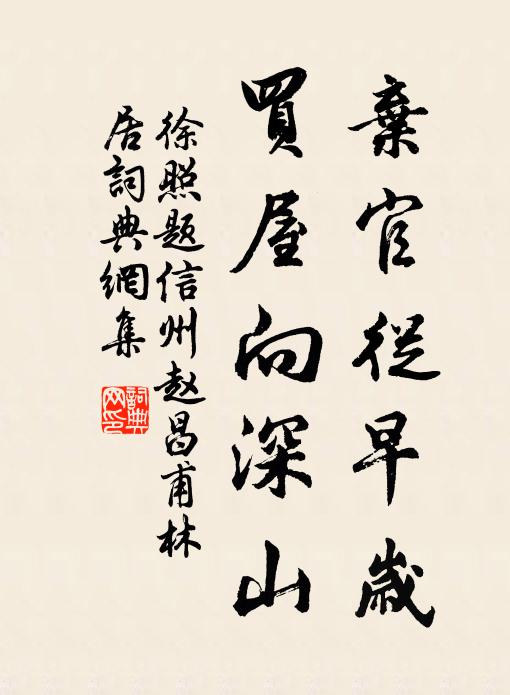 棄官從早歲
買屋向深山
徐照题信州赵昌甫林
居詞典網集
詞典
网印